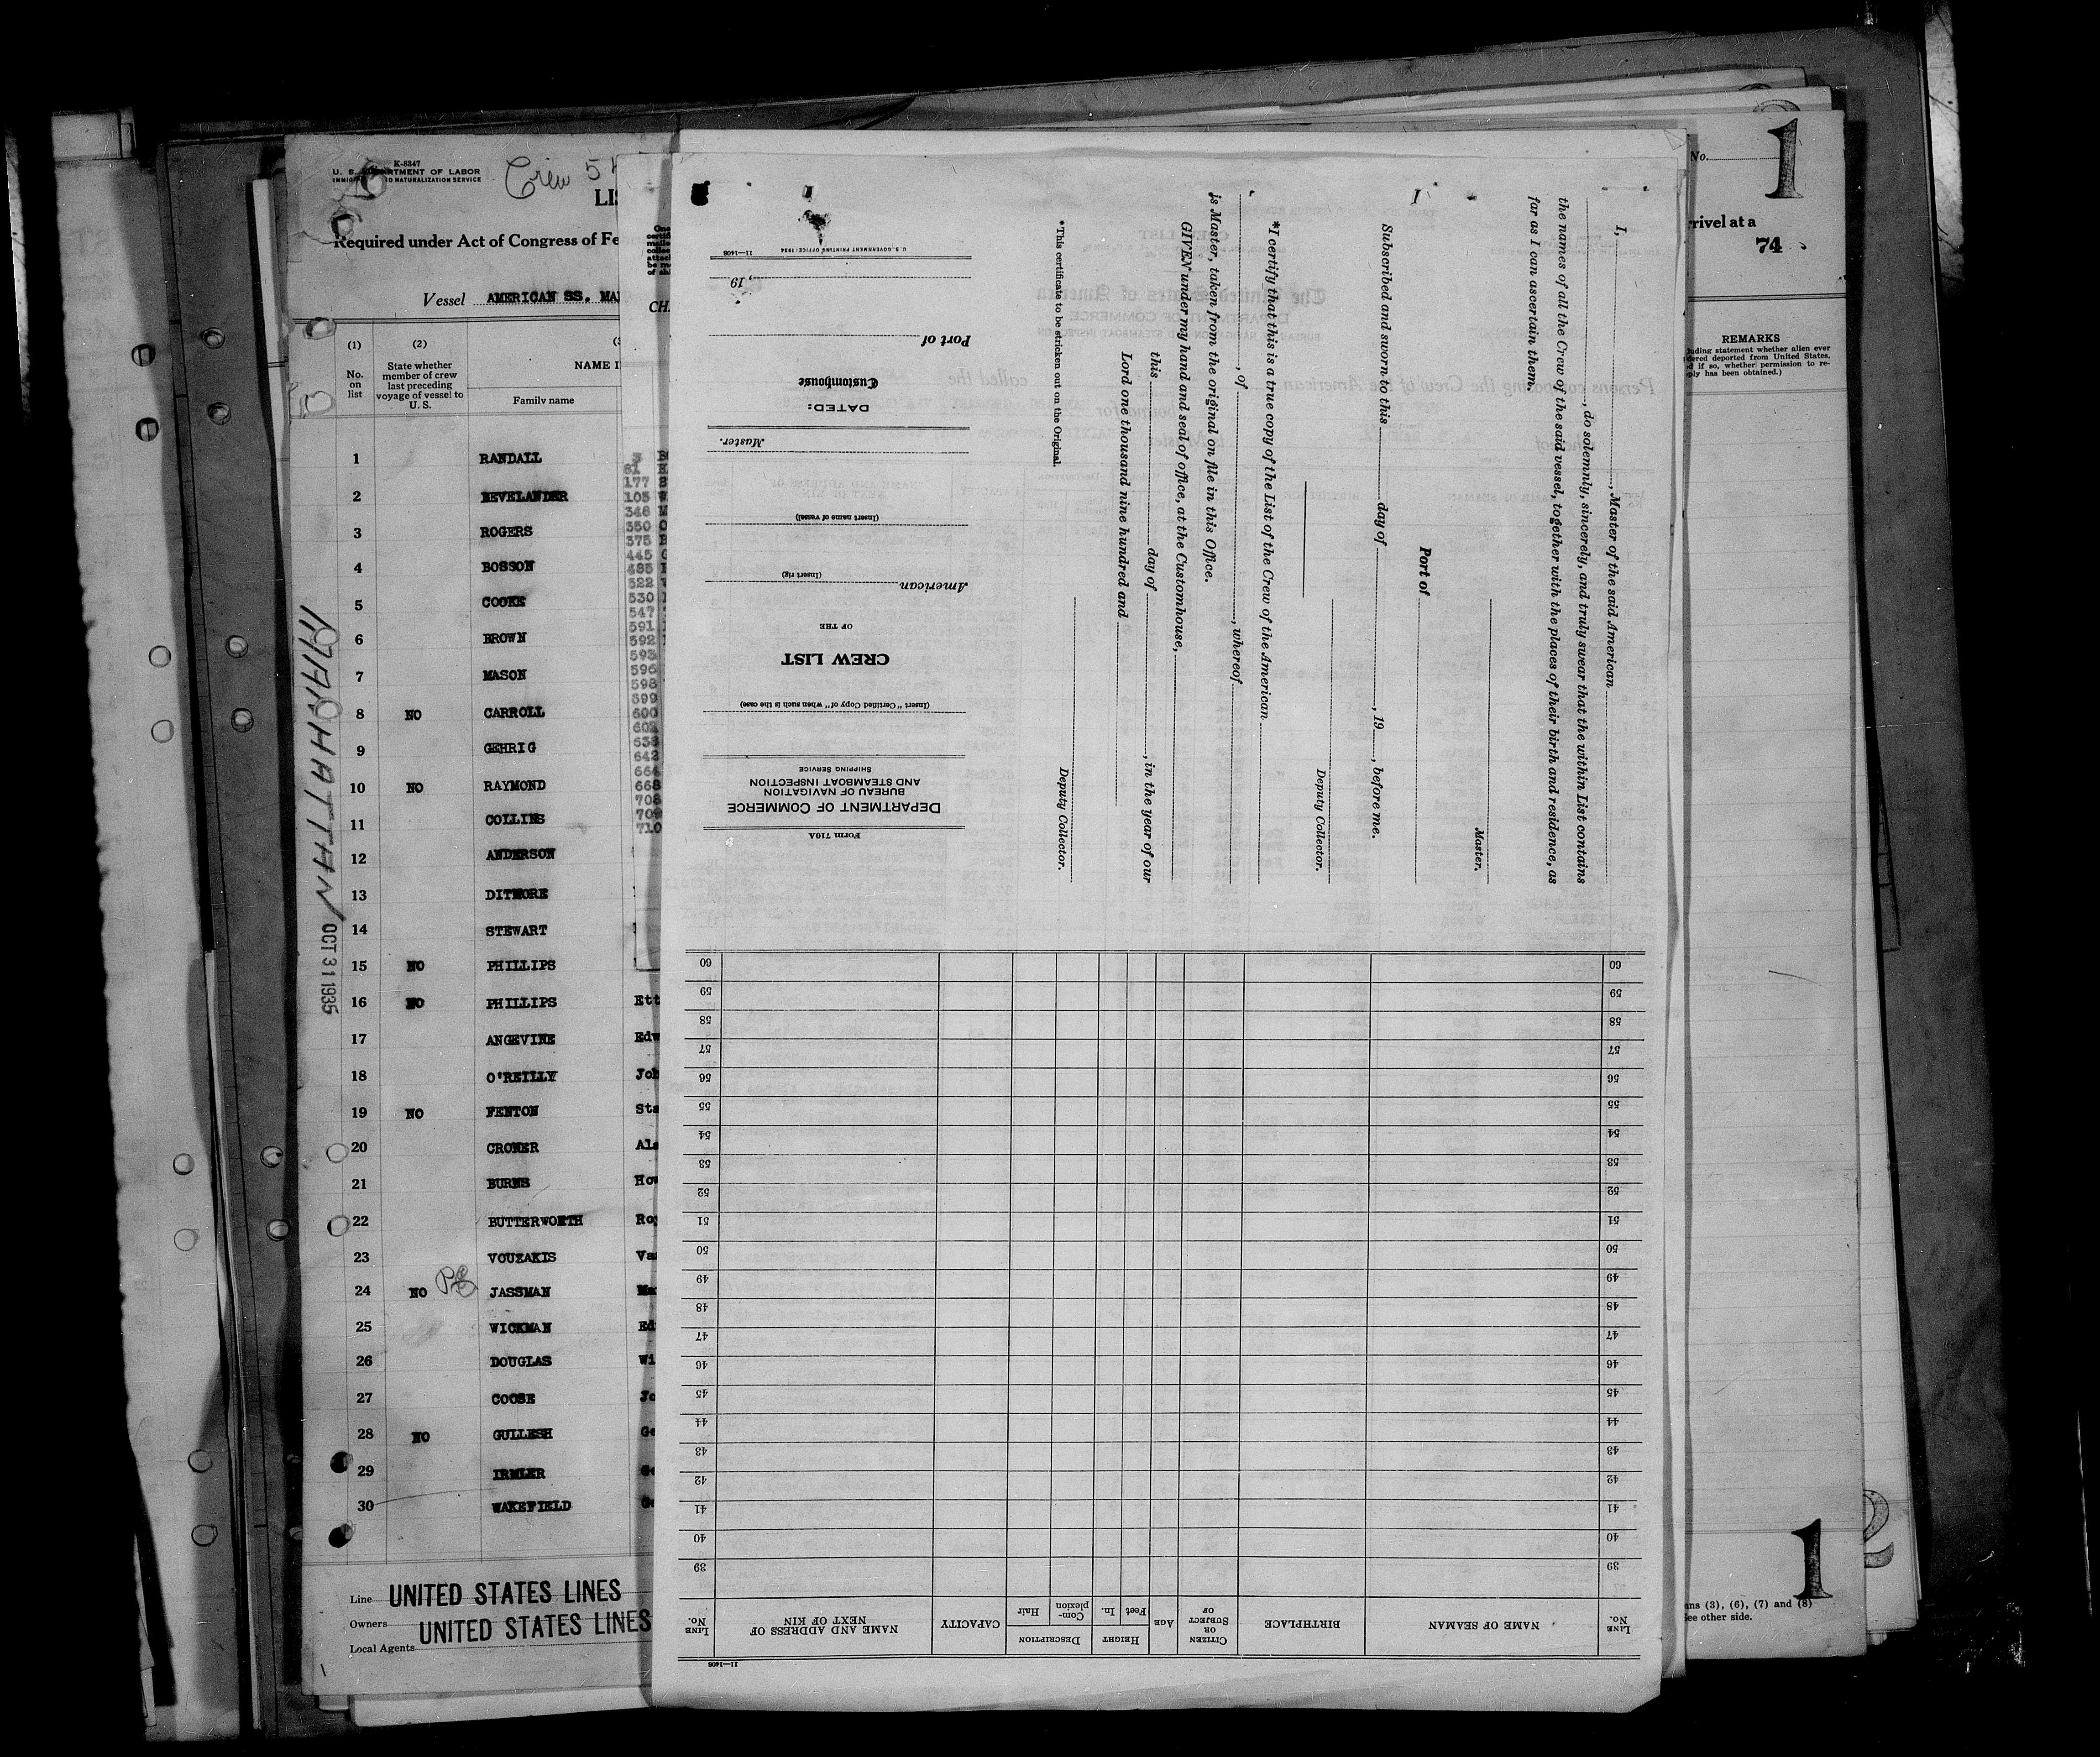 K-8347
U. S. DEPARTMENT OF LABOR
NATURALIZATION SERVICE
Crew 5
Required under Act of Congress of Fe
Vessel AMERICAN SS. MA
(1)
(2)
No. on list
State whether member of crew last preceding voyage of vessel to U. S.
NAME I
Family name
1 RANDALL
2 BEVELANDER
3 ROGERS
4 BOSSON
5 COOKE
6 BROWN
7 MASON
8 NO CARROLL
9 GEHRIG
10 NO RAYMOND
11 COLLINS
12 ANDERSON
13 DITMORE
14 STEWART
15 NO PHILLIPS
16 NO PHILLIPS Ett
17 ANGEVINE Edw
18 O'REILLY Joh
19 NO FENTON Sta
20 CRONER Ale
21 BURNS How
22 BUTTERWORTH Roy
23 VOUZAKIS Va
24 NO JASSMAN Ma
25 WICKMAN Ed
26 DOUGLAS Wi
27 COOSE Jo
28 NO GULLESH Ge
29 IRMLER Ge
30 WAKEFIELD Ge
Line UNITED STATES LINES
Owners UNITED STATES LINES
Local Agents
MANHATTAN OCT 31 1935
CH
3
81
177
105
346
350
375
445
485
522
530
547
591
592
593
596
598
599
600
602
538
642
664
668
708
709
710
I, , Master of the said American
, do solemnly, sincerely, and truly swear that the within List contains
the names of all the Crew of the said vessel, together with the places of their birth and residence, as
far as I can ascertain them.
Master.
Port of
Subscribed and sworn to this day of , 19 , before me.
Deputy Collector.
*I certify that this is a true copy of the List of the Crew of the American
, of , whereof
is Master, taken from the original on file in this Office.
GIVEN under my hand and seal of office, at the Customhouse,
this day of , in the year of our
Lord one thousand nine hundred and
Deputy Collector.
*This certificate to be stricken out on the Original.
Form 710A
DEPARTMENT OF COMMERCE
BUREAU OF NAVIGATION
AND STEAMBOAT INSPECTION
SHIPPING SERVICE
(Insert "Certified Copy of" when such is the case)
CREW LIST
OF THE
American
(Insert rig)
(Insert name of vessel)
Master.
DATED:
Customhouse
Port of
, 19
11—1408
U. S. GOVERNMENT PRINTING OFFICE: 1934
11—1408
LINE No.
NAME OF SEAMAN
BIRTHPLACE
CITIZEN OR SUBJECT OF
AGE
HEIGHT
Feet
In.
DESCRIPTION
Complexion
Hair
CAPACITY
NAME AND ADDRESS OF NEXT OF KIN
LINE No.
39 39
40 40
41 41
42 42
43 43
44 44
45 45
46 46
47 47
48 48
49 49
50 50
51 51
52 52
53 53
54 54
55 55
56 56
57 57
58 58
59 59
60 60
No.
1
rrivel at a
74
REMARKS
ply has been obtained.)
1
2
ns (3), (6), (7) and (8)
See other side.